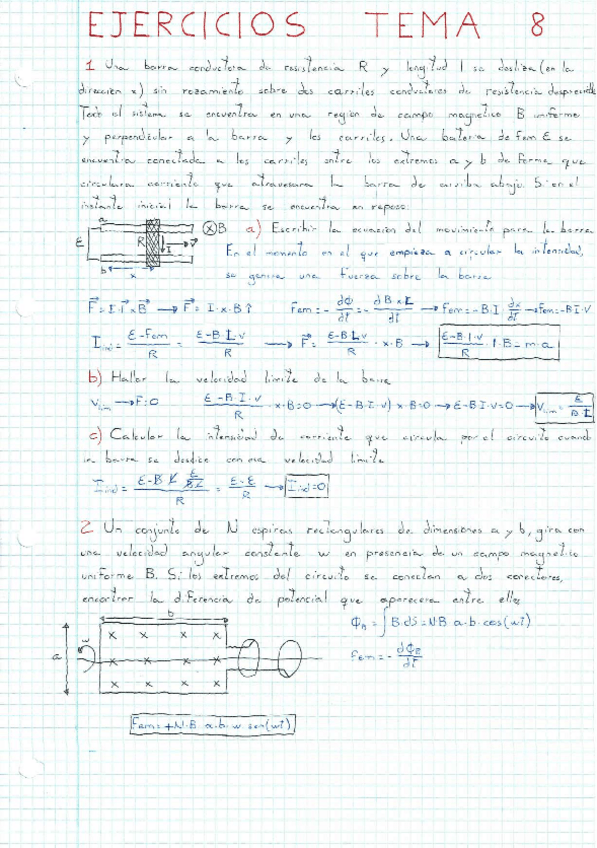 EJERCICIOS TEMA 8
1 Una barra conductora de resistencia R y longitud l se desliza (en la
dirección x) sin rozamiento sobre dos carriles conductores de resistencia despreciable
Todo el sistema se encuentra en una región de campo magnetico B uniforme
y perpendicular a la barra y los carriles. Una bateria de fem ε se
encuentra conectada a los carriles entre los extremos a y b de forma que
circulara corriente que atravesara la barra de arriba abajo. Si en el
instante inicial la barra se encuentra en reposo:
a
ε R I v
b x
⊗B a) Escribir la ecuacion del movimiento para la barra
En el momento en el que empieza a circular la intensidad,
se genera una fuerza sobre la barra
F⃗ = I·l⃗ x B⃗ → F⃗ = I·x·B↑ Fem = - dΦ/dt = - dB x L/dt → Fem = -B·l · dx/dt → Fem = -B l V
I ind = ε-Fem/R = ε-B·L·v/R → F⃗ = ε-B L v/R · x·B → ε-B·l·v/R · l·B = m·a
b) Hallar la velocidad limite de la barra
V lim → F=0 ε-B·l·v/R · x·B=0 → (ε-B·l·v) x·B=0 → ε-B l·v=0 → V lim = ε/B·l
c) Calcular la intensidad de corriente que circula por el circuito cuando
la barra se deslice con esa velocidad limite
I ind = ε-B·L · ε/B·L / R = ε-ε/R → I ind=0
2 Un conjunto de N espiras rectangulares de dimensiones a y b, gira con
una velocidad angular constante w en presencia de un campo magnetico
uniforme B. Si los extremos del circuito se conectan a dos conectores,
encontrar la diferencia de potencial que aparecera entre ellos
b
a
x x x x
x x x x
x x x x
Φ = ∫ B ds = NB a·b·cos(wt)
fem = - dΦB/dt
Fem = +N·B a·b·w sen(wt)